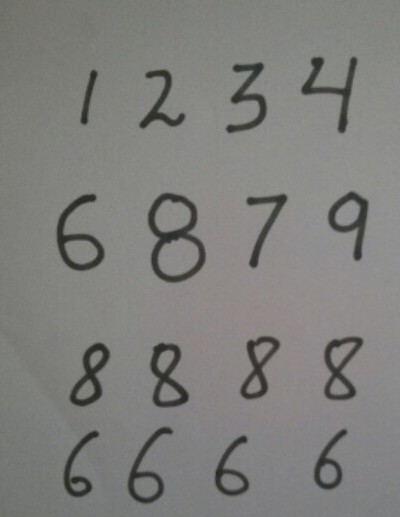 1 2 3 4
6 8 7 9
8 8 8 8
6 6 6 6